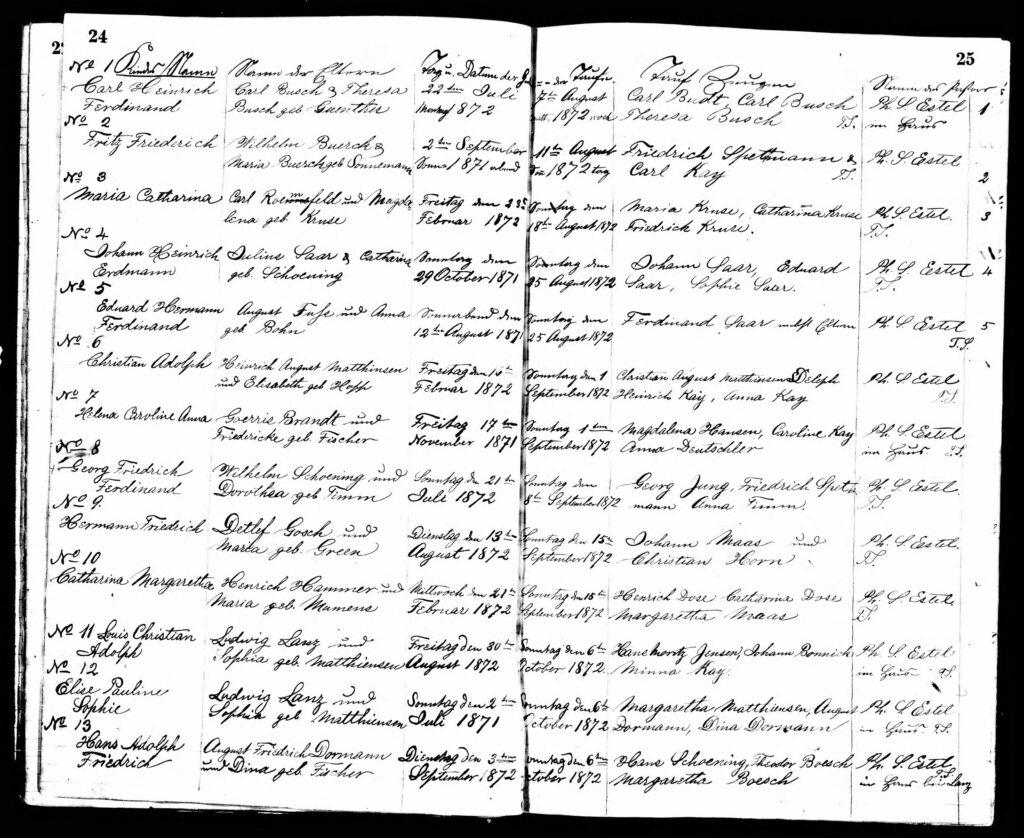 24
25
No 1 Kinder Namen Namen der Eltern Tag u. Datum der der Taufe. Tauf Zeugen Namen des Pastors
Carl Heinrich Carl Busch & Theresa 22ten Juli 7ten August Carl Budt, Carl Busch Ph. S. Estel 1
Ferdinand Busch geb Guenthe Montag 1872 1872 Theresa Busch T.S. im Haus
No 2
Fritz Friederich Wilhelm Buerch & 2ten September 11ten August Friedrich Spetmann & Ph. S. Estel
Maria Buerch geb Sonnemann 1871 1872 tag Carl Kay T.S. 2
No 3
Maria Catharina Carl Rosenfeld und Magda- Freitag den 23 Sonntag den Maria Kruse, Catharina Kruse Ph. S. Estel. 3
lena geb Kruse Februar 1872 18ten August 1872 Friedrich Kruse. T.S.
No 4
Johann Heinrich Julius Saar & Catharina Sonntag den Sonntag den Johann Saar, Eduard Ph. S. Estel 4
Erdmann geb. Schoening 29 October 1871 25 August 1872 Saar, Sophie Saar. T.S.
No 5
Eduard Hermann August Fuhse und Anna Sonnabend den Sonntag den Ferdinand Saar nebst Eltern Ph. S. Estel 5
Ferdinand geb Bohn 12ten August 1871 25 August 1872 T.S.
No 6
Christian Adolph Heinrich August Matthiesen Freitag den 16ten Sonntag den 1 Christian August Matthiensen Ph. S. Estel
und Elisabeth geb Hopp Februar 1872 September 1872 Heinrich Kay, Anna Kay T.S.
No 7
Helena Caroline Anna Goerris Brandt und Freitag 17ten Sonntag 1ten Magdalena Hansen, Caroline Kay Ph. S. Estel
Friedericke geb. Fischer November 1871 September 1872 Anna Deutschler im Haus T.S.
No 8
Georg Friedrich Wilhelm Schoening und Sonntag den 21ten Sonntag den Georg Jung, Friedrich Spet- Ph. S. Estel
Ferdinand Dorothea geb Timm Juli 1872 8te September 1872 mann Anna Timm. T.S.
No 9.
Hermann Friedrich Detlef Gosch und Dienstag den 13ten Sonntag den 15ten Johann Maas und Ph. S. Estel.
Maria geb. Green August 1872 September 1872 Christian Horn. T.S.
No 10
Catharina Margaretha Henrich Hammer und Mittwoch den 21ten Sonntag den 15ten Henrich Dose Catharina Dose Ph. S. Estel.
Maria geb. Mamens Februar 1872 September 1872 Margaretha Maas T.S.
No 11 Louis Christian Ludwig Lanz und Freitag den 30ten Sonntag den 6ten Hans Moritz Jensen, Johann Bonnich Ph. S. Estel
Adolph Sophia geb. Matthiensen August 1872 October 1872 Minna Kay. im Haus T.S.
No 12
Elise Pauline Ludwig Lanz und Sonntag den 2ten Sonntag den 6ten Margaretha Matthiensen, August Ph. S. Estel
Sophie Sophia geb Matthiensen Juli 1871 October 1872 Dormann, Dina Dormann im Haus T.S.
No 13
Hans Adolph August Friedrich Dormann Dienstag den 3ten Sonntag den 6ten Hans Schoening, Theodor Boesch Ph. S. Estel T.S.
Friedrich und Dina geb. Fischer September 1872 October 1872 Margaretha Boesch in Haus bei Lanz